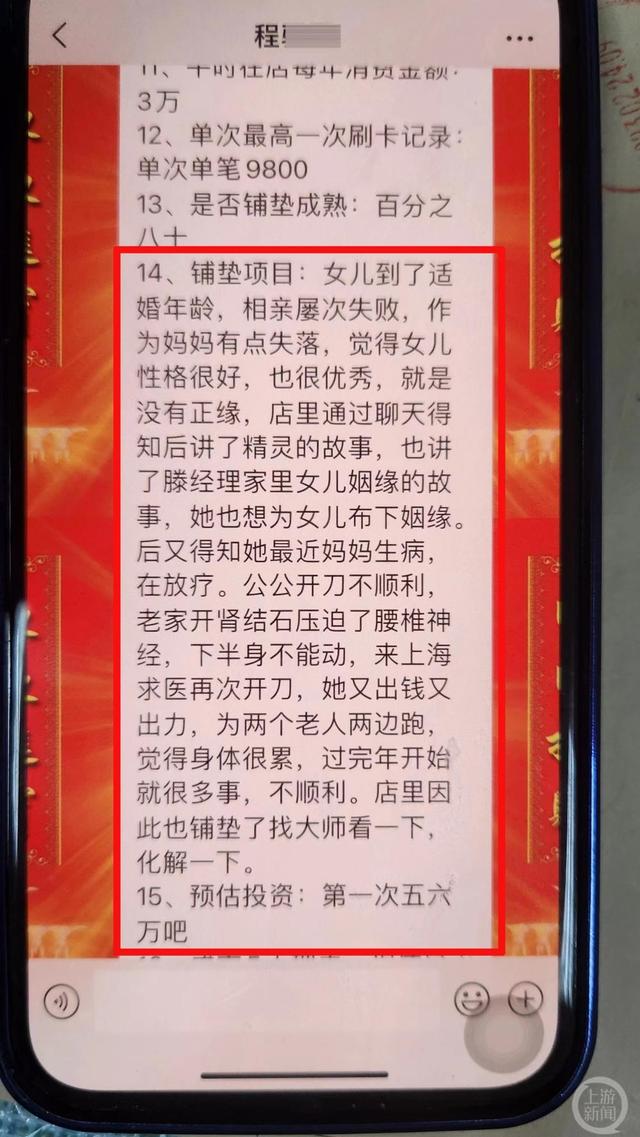 程
11、平时在店每年消费金额：
3万
12、单次最高一次刷卡记录：
单次单笔9800
13、是否铺垫成熟：百分之
八十
14、铺垫项目：女儿到了适
婚年龄，相亲屡次失败，作
为妈妈有点失落，觉得女儿
性格很好，也很优秀，就是
没有正缘，店里通过聊天得
知后讲了精灵的故事，也讲
了滕经理家里女儿姻缘的故
事，她也想为女儿布下姻缘。
后又得知她最近妈妈生病，
在放疗。公公开刀不顺利，
老家开肾结石压迫了腰椎神
经，下半身不能动，来上海
求医再次开刀，她又出钱又
出力，为两个老人两边跑，
觉得身体很累，过完年开始
就很多事，不顺利。店里因
此也铺垫了找大师看一下，
化解一下。
15、预估投资：第一次五六
万吧
上游
新闻